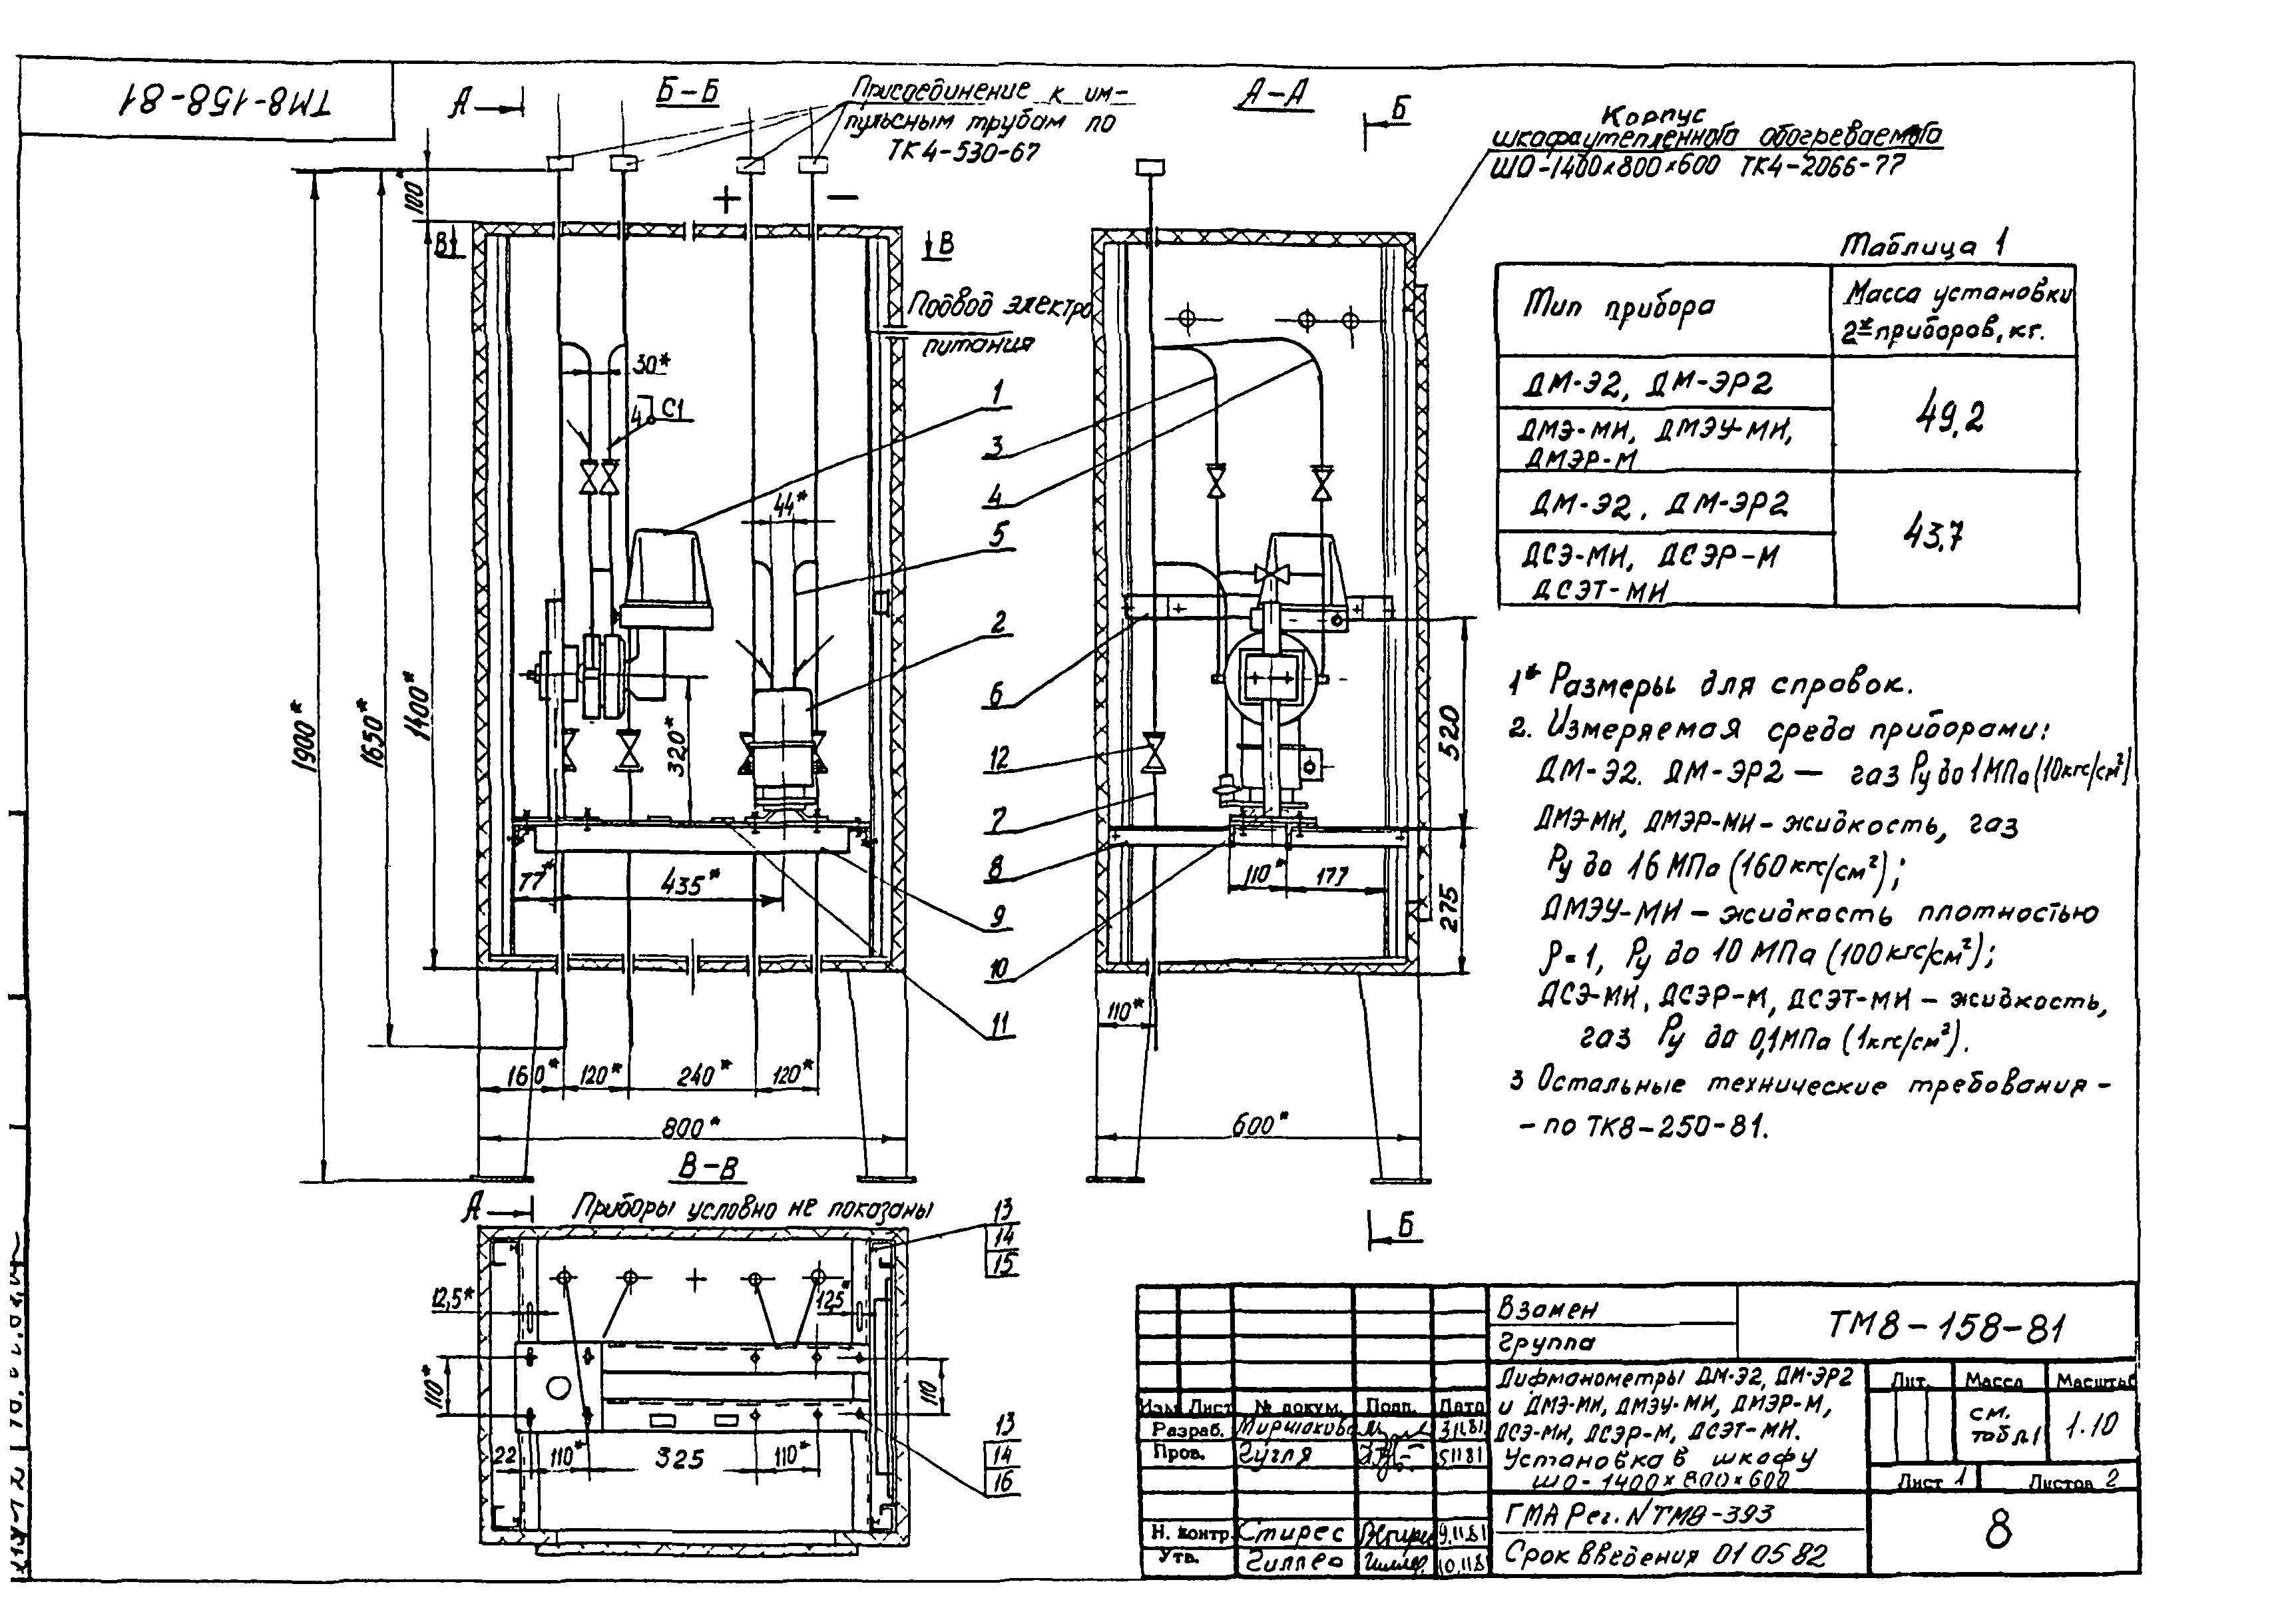 ТМ8-158-81
А
Б-Б
Присоединение к им-
пульсным трубам по
ТК4-530-67
А-А
Б
Корпус
шкафа утепленного обогреваемого
ШО-1400х800х600 ТК4-2066-77
100
+
-
В
В
Подвод электро
питания
30*
4 С1
44*
1
3
4
5
2
6
12
7
8
9
10
11
1900*
1650*
1400*
320*
77*
435*
160*
120*
240*
120*
800*
520
275
110*
177
110*
600*
Таблица 1
Тип прибора
Масса установки
2* приборов, кг.
ДМ-Э2, ДМ-ЭР2
49,2
ДМЭ-МИ, ДМЭУ-МИ,
ДМЭР-М
ДМ-Э2. ДМ-ЭР2
43,7
ДСЭ-МИ, ДСЭР-М
ДСЭТ-МИ
1* Размеры для справок.
2. Измеряемая среда приборами:
ДМ-Э2. ДМ-ЭР2 — газ Ру до 1МПа (10кгс/см²)
ДМЭ-МИ, ДМЭР-МИ - жидкость, газ
Ру до 16 МПа (160кгс/см²);
ДМЭУ-МИ - жидкость плотностью
ρ=1, Ру до 10 МПа (100кгс/см²);
ДСЭ-МИ, ДСЭР-М, ДСЭТ-МИ - жидкость,
газ Ру до 0,1МПа (1кгс/см²).
3 Остальные технические требования -
- по ТК8-250-81.
В-В
А
Приборы условно не показаны
13
14
15
12,5*
125*
110*
110
22
110*
325
110*
13
14
16
Б
Взамен
Группа
ТМ8-158-81
Дифманометры ДМ-Э2, ДМ-ЭР2
и ДМЭ-МИ, ДМЭУ-МИ, ДМЭР-М,
ДСЭ-МИ, ДСЭР-М, ДСЭТ-МИ.
Установка в шкафу
ШО-1400х800х600
Лит. Масса Масштаб
см.
табл1
1.10
Лист 1 Листов 2
Изм. Лист № докум. Подп. Дата
Разраб. 3.11.81
Пров. Гугля 5 11 81
Н. контр. Стирес 9.11.81
Утв. Гиллео 10.11.81
ГМА Рег. N ТМ8-393
Срок введения 01 05 82
8